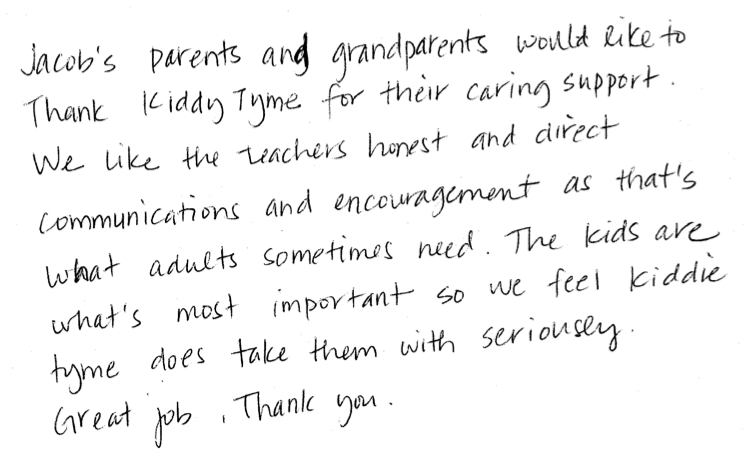 Jacob's parents and grandparents would like to
Thank Kiddy Tyme for their caring support.
We like the teachers honest and direct
communications and encouragement as that's
what adults sometimes need. The kids are
what's most important so we feel kiddie
tyme does take them with seriousey.
Great job, Thank you.